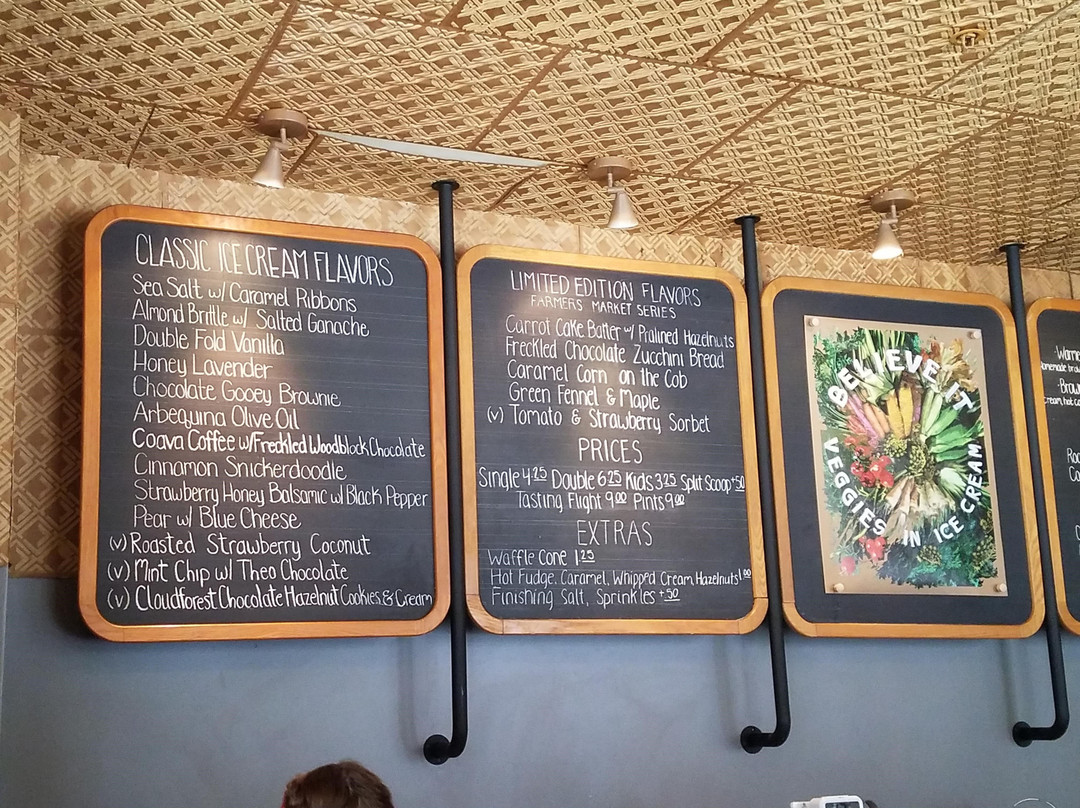 CLASSIC ICE CREAM FLAVORS
Sea Salt w/ Caramel Ribbons
Almond Brittle w/ Salted Ganache
Double Fold Vanilla
Honey Lavender
Chocolate Gooey Brownie
Arbequina Olive Oil
Coava Coffee w/Freckled Woodblock Chocolate
Cinnamon Snickerdoodle
Strawberry Honey Balsamic w/ Black Pepper
Pear w/ Blue Cheese
(v) Roasted Strawberry Coconut
(v) Mint Chip w/ Theo Chocolate
(v) Cloudforest Chocolate Hazelnut Cookies & Cream
LIMITED EDITION FLAVORS
FARMERS MARKET SERIES
Carrot Cake Batter w/ Pralined Hazelnuts
Freckled Chocolate Zucchini Bread
Caramel Corn on the Cob
Green Fennel & Maple
(v) Tomato & Strawberry Sorbet
PRICES
Single 4.25 Double 6.25 Kids 3.25 Split Scoop +.50
Tasting Flight 9.00 Pints 9.00
EXTRAS
Waffle Cone 1.25
Hot Fudge, Caramel, Whipped Cream, Hazelnuts 1.00
Finishing Salt, Sprinkles +.50
BELIEVE IT
VEGGIES IN ICE CREAM